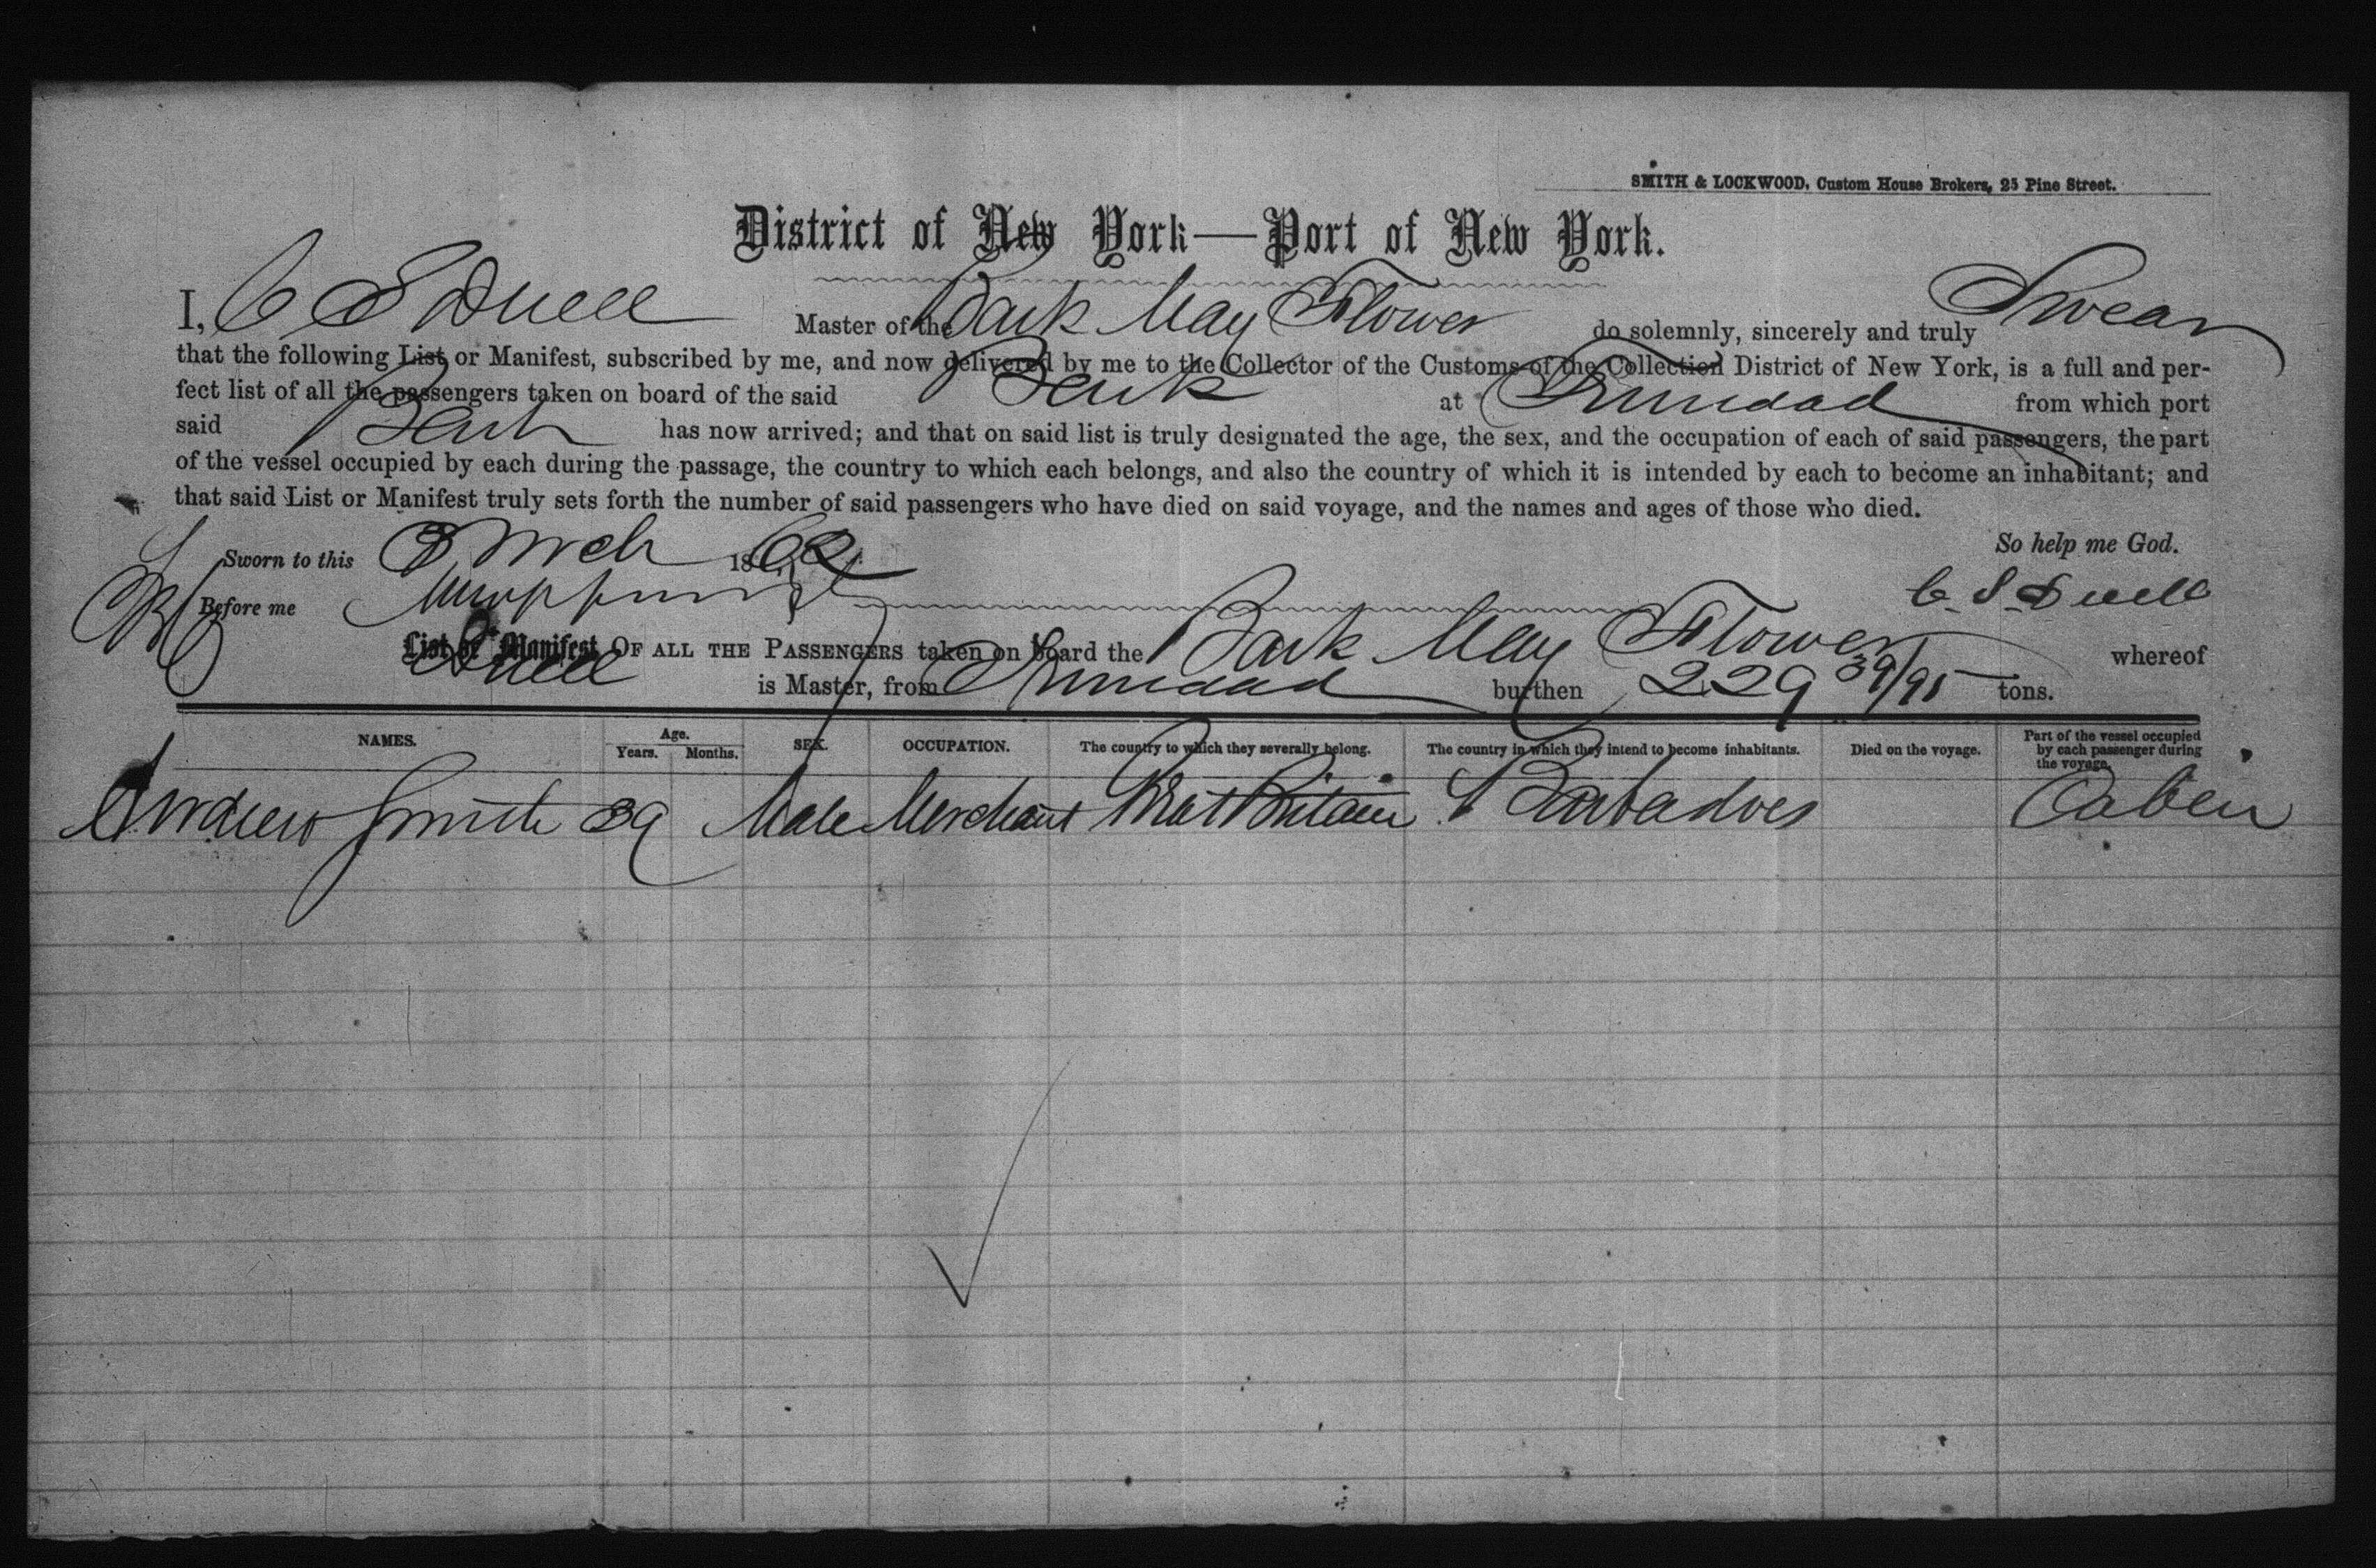 SMITH & LOCKWOOD, Custom House Brokers, 25 Pine Street.
District of New York—Port of New York.
I, C S Duell Master of the Bark May Flower do solemnly, sincerely and truly Swear
that the following List or Manifest, subscribed by me, and now delivered by me to the Collector of the Customs of the Collection District of New York, is a full and per-
fect list of all the passengers taken on board of the said Bark at Trinidad from which port
said Bark has now arrived; and that on said list is truly designated the age, the sex, and the occupation of each of said passengers, the part
of the vessel occupied by each during the passage, the country to which each belongs, and also the country of which it is intended by each to become an inhabitant; and
that said List or Manifest truly sets forth the number of said passengers who have died on said voyage, and the names and ages of those who died.
So help me God.
Sworn to this 3 Mrch 1862
Before me C. S Duell
List or Manifest OF ALL THE PASSENGERS taken on board the Bark May Flower whereof
Duell is Master, from Trinidad burthen 229 39/95 tons.
NAMES. Age. Years. Months. SEX. OCCUPATION. The country to which they severally belong. The country in which they intend to become inhabitants. Died on the voyage. Part of the vessel occupied by each passenger during the voyage.
Andrew Smith 39 Male Merchant Great Britain Barbadoes Cabin